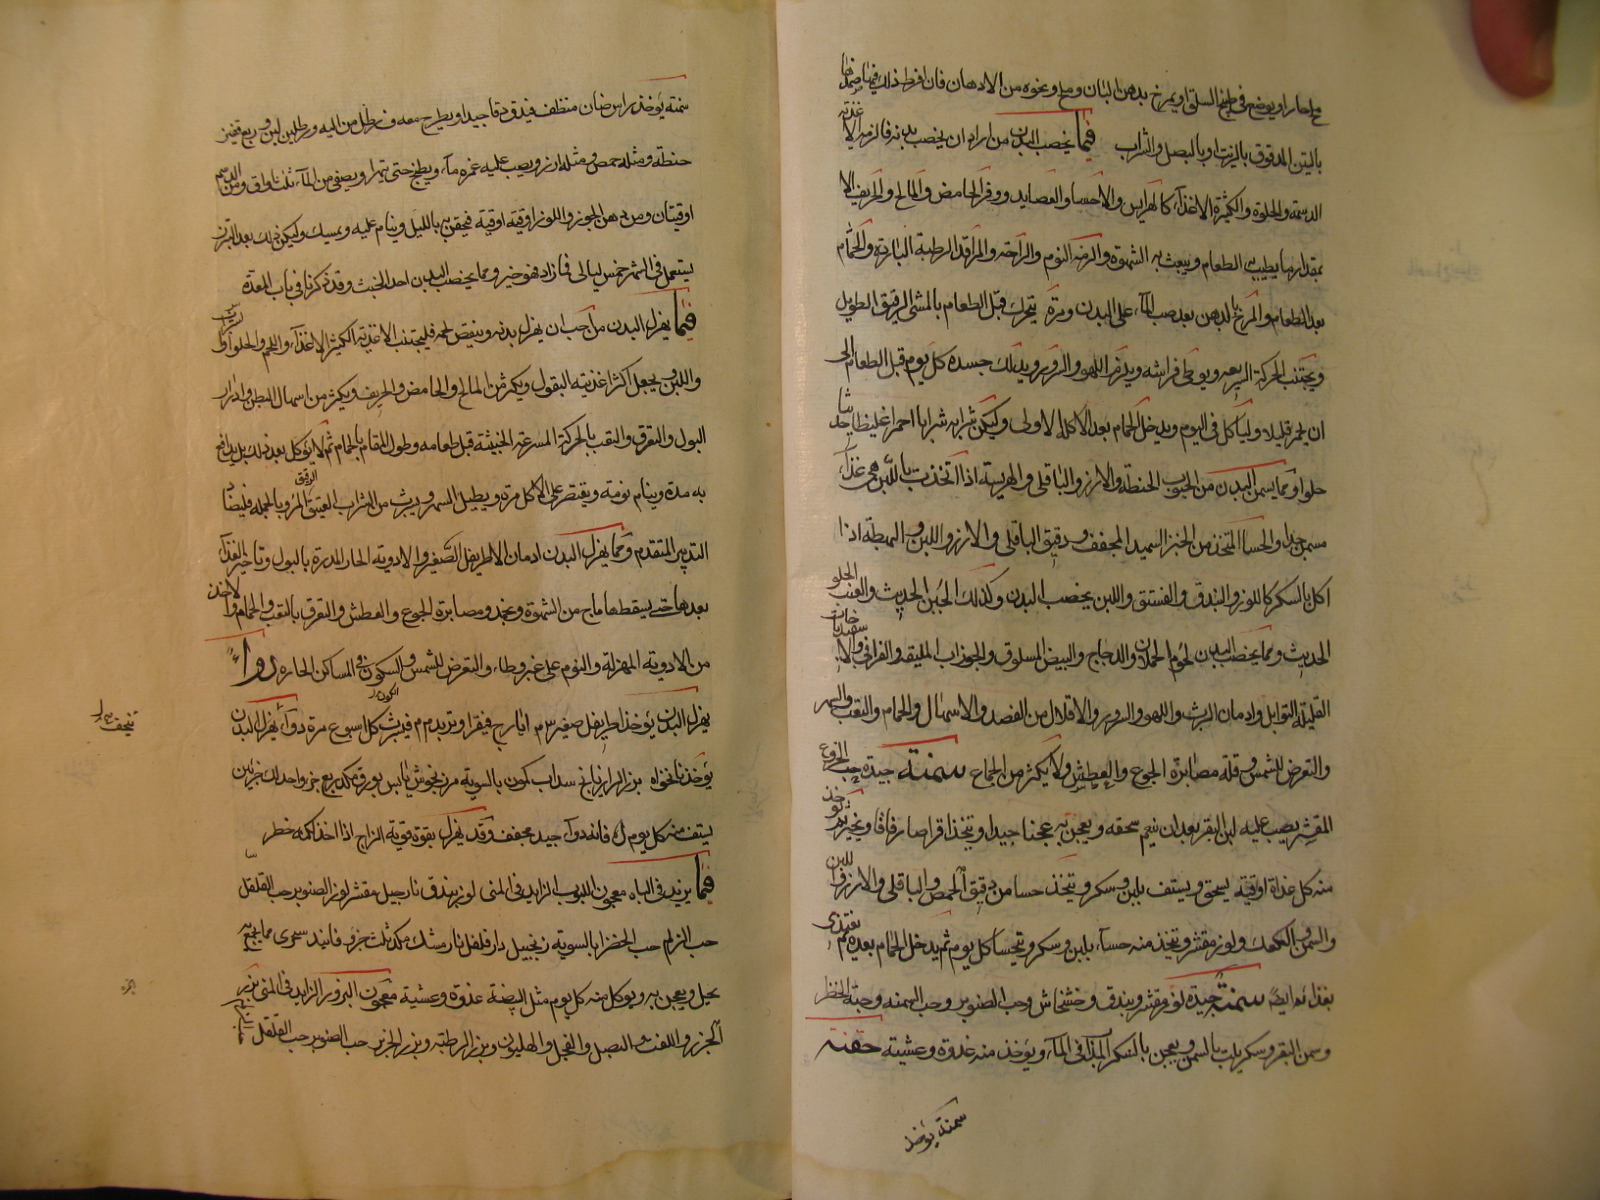 ملحا حارا ويوضع في طبيخ السلق او يمرخ بدهن البان وملح ونحوه من الادهان فان افرط ذلك فيها ضمدها
بالتين المدقوق بالزيت او بالبصل والشراب فيما يخصب البدن من اراد ان يخصب بدنه فالزمه الاغذية
الدسمة والحلوة والكثيرة الاغذاء كالهرايس والاحساء والعصايد ووقر الحامض والمالح والحريف الا
بمقدار ما يطيب الطعام ويبعث به الشهوة والزمه النوم والراحة والمراقد الرطبة الباردة والحمام
بعد الطعام والمرخ بالدهن بعد صب الماء على البدن ومرة يتحرك قبل الطعام بالمشى الرقيق الطويل
ويجتنب الحركة السريعة ويوطى فراشه ويلزم اللهو والسرور ويدلك جسده كل يوم قبل الطعام الى
ان يحمر قليلا ولياكل في اليوم ويدخل الحمام بعد الاكلة الاولى وليكن شرابه شرابا احمر غليظا حديثا
حلوا ومما يسمن البدن من الحبوب الحنطة والارز والباقلى والهريسة اذا اتخذت باللبن هي غذاء
مسمن جدا والحسا المتخذ من الخبز السميد المجفف ودقيق الباقلى والارز واللبن والسمن اذا
اكل بالسكر كاللوز والبندق والفستق واللبن يخصب البدن وكذلك الجبن الحديث والعنب الحلو
الحديث ومما يخصب البدن لحوم الحملان والدجاج والبيض المسلوق والجوزاب المليقة والفراني والاسفيدباجات
القليلة التوابل وادمان الشرب واللهو والسرور والاقلال من الفصد والاسهال والحمام والتعب والسهر
والتعرض للشمس وقلة مصابرة الجوع والعطش ولا يكثر من الجماع سمنة جيدة حب الخروع
المقشر يصب عليه لبن البقر بعد ان ينعم سحقه ويعجن به عجنا جيدا ويتخذ اقراصا رقاقا ويخبز ثم يوخذ
منه كل غداة اوقية يسحق ويستف بلبن وسكر ويتخذ حسا من دقيق الحمص والباقلى والارز واللبن
والسمن والكعك ولوز مقشر ويتخذ منه حساء بلبن وسكر ويتحسا كل يوم ثم يدخل الحمام بعده ثم يغتذى
بغذائه ايضا سمنة جيدة لوز مقشر وبندق وخشخاش وحب الصنوبر وحب السمنة وحبة الخضر
وسمن البقر وسكر يلت بالسمن ويعجن بالسكر المذاب في الماء ويوخذ منه غدوة وعشية حقنة
سمنة يؤخذ
سمنة يؤخذ راس ضان منظف فيدق دقا جيدا ويطرح معه رطل من الية ورطلين لبن وربع قفيز
حنطة ومثله حمص ومثله ارز ويصب عليه غمره ماء ويطبخ حتى يتهرا ويصفى من الماء ثلث اواق ومن الدسم
اوقيتان ومن دهن الجوز واللوز اوقية اوقية فيحقن به بالليل وينام عليه ويمسك وليكن ذلك بعد التبرز
يستعمل في الشهر خمس ليالى فما زاد فهو خير ومما يخصب البدن احد الخبث وقد ذكرنا في باب المعدة
فيما يهزل البدن من احب ان يهزل بدنه وينقص لحمه فليجتنب الاغذية الكثيرة الاغذاء واللحم والحلوا والشراب
واللبن ويجعل اكثر اغذيته البقول ويكثر من المالح والحامض والحريف ويكثر من اسهال البطن وادرار
البول والتعرق والتعب بالحركة المسرعة الخبيثة قبل طعامه وطول المقام بالحمام ثم لا يؤكل بعد ذلك بل يدافع
به مدة وينام نومة ويقتصر على الاكل مرة ويطيل السهر ويشرب من الشراب العتيق الرقيق المر وبالجملة فليضاد
التدبير المتقدم ومما يهزل البدن ادمان الاطريفل الصغير والادوية الحارة المدرة بالبول وتاخير الغذاء
بعدها حتى يسقط ما هاج من الشهوة ومصابرة الجوع والعطش والتعرق بالتعب والحمام والاخذ
من الادوية المهزلة والنوم على غير وطاء والتعرض للشمس والسكون في المساكن الحارة دواء
يهزل البدن يؤخذ اطريفل صغير ايارج فيقرا وتربد فيشرب كل اسبوع مرة دواء يهزل البدن
يؤخذ نانخواه بزر الرازيانج سداب كمون بالسوية مرزنجوش يابس بورق مكد ربع جزو واحد لك جزئين
يستف منه كل يوم فانه دواء جيد مجفف وقد يهزل بقوة قوية الزاج اذا اخذ لكنه خطر
فيما يزيد في الباه معجون اللبوب الزايد في المنى لوز بندق نارجيل مقشر لوز الصنوبر حب القلقل
حب الزلم حب الخضرا بالسوية زنجبيل دارفلفل نارمشك مكد ثلث جزو فانيد سجزى مما يجمع به
يحل ويعجن به ويوكل منه كل يوم مثل البيضة غدوة وعشية معجون البزور الزايد في المنى بزر
الجزر واللفت والبصل والفجل والهليون وبزر الرطبة وبزر الجزير حب الصنوبر حب القلقل